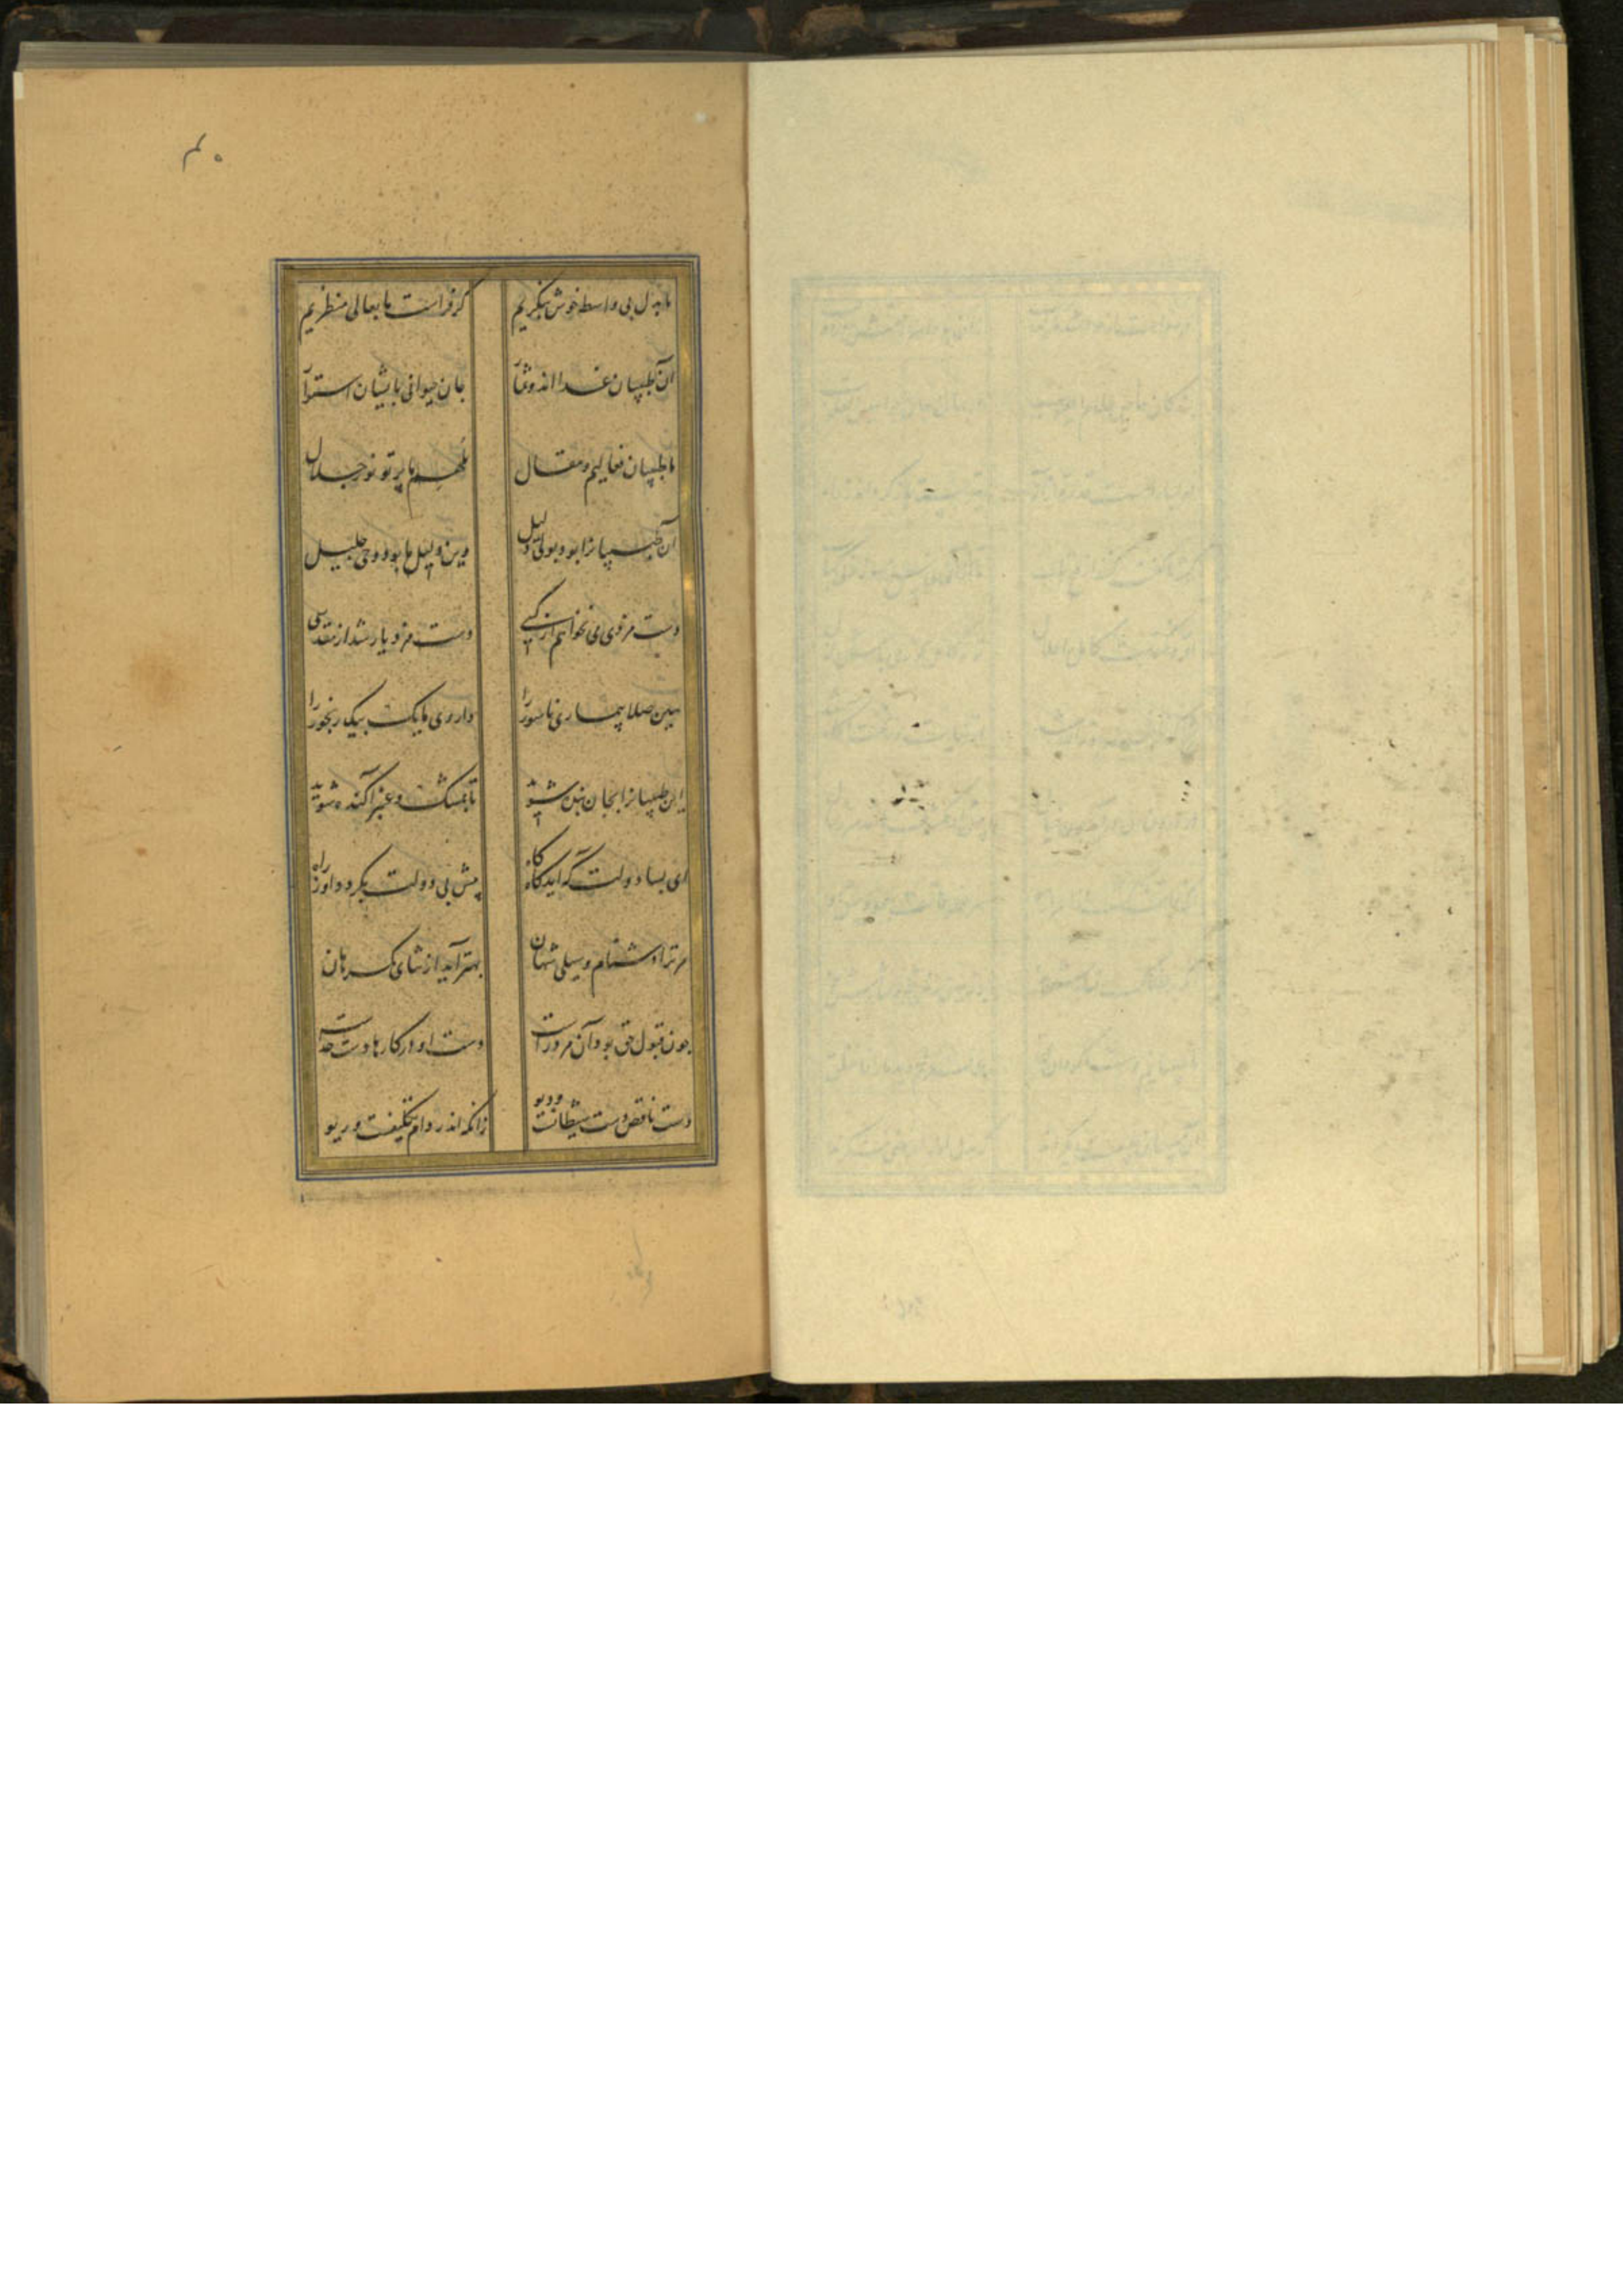 ۴۰
ما بدل بی واسطه خوش بنگریم کز فراست ما بعالی منظریم
آن طبیبان غذااند و ثمار جان حیوانی بایشان استوار
ما طبیبان فعالیم و مقال ملهم ما پرتو نور جلال
آن طبیبانرا بود بولی دلیل وین دلیل ما بود وحی جلیل
دست مزدی می نخواهیم از کسی دست مزد یار شد از مقدسی
هین صلا بیماری ناسور را داروی ما یک بیک رنجور را
این طبیبانرا بجان بنده شوید تا بمشک و عنبر آکنده شوید
ای بسا دولت که آید گاه گاه پیش بی دولت بگردد او ز راه
مر ترا دشنام و سیلی شهان بهتر آید از ثنای گمرهان
چون قبول حق بود آن مرد راست دست او در کارها دست خداست
دست ناقص دست شیطانست و دیو زانکه اندر دام تکلیفست و ریو